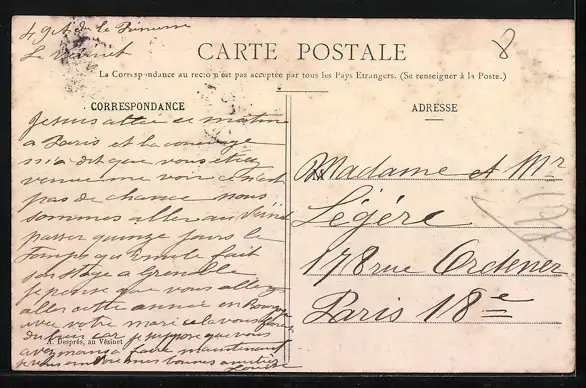 4 de la
Le Vésinet
8
CARTE POSTALE
La Correspondance au recto n'est pas acceptée par tous les Pays Etrangers. (Se renseigner à la Poste.)
CORRESPONDANCE
ADRESSE
Je suis allée ce matin
a Paris et la concierge
m'a dit que vous etiez
venue me voir c'est
pas de chance nous
sommes aller au Vésinet
passer quinze jours le
temps qu Emile fait
son stage a Grenelle
je pense que vous allez
aller cette année en
avec votre mari cela vous fera
du bien car je suppose que vous
avez mans a faire maintenant
mes bonnes amitiés
Louise
A. Desprès, au Vésinet
Madame et Mr
Légére
178 rue Ordener
Paris 18e